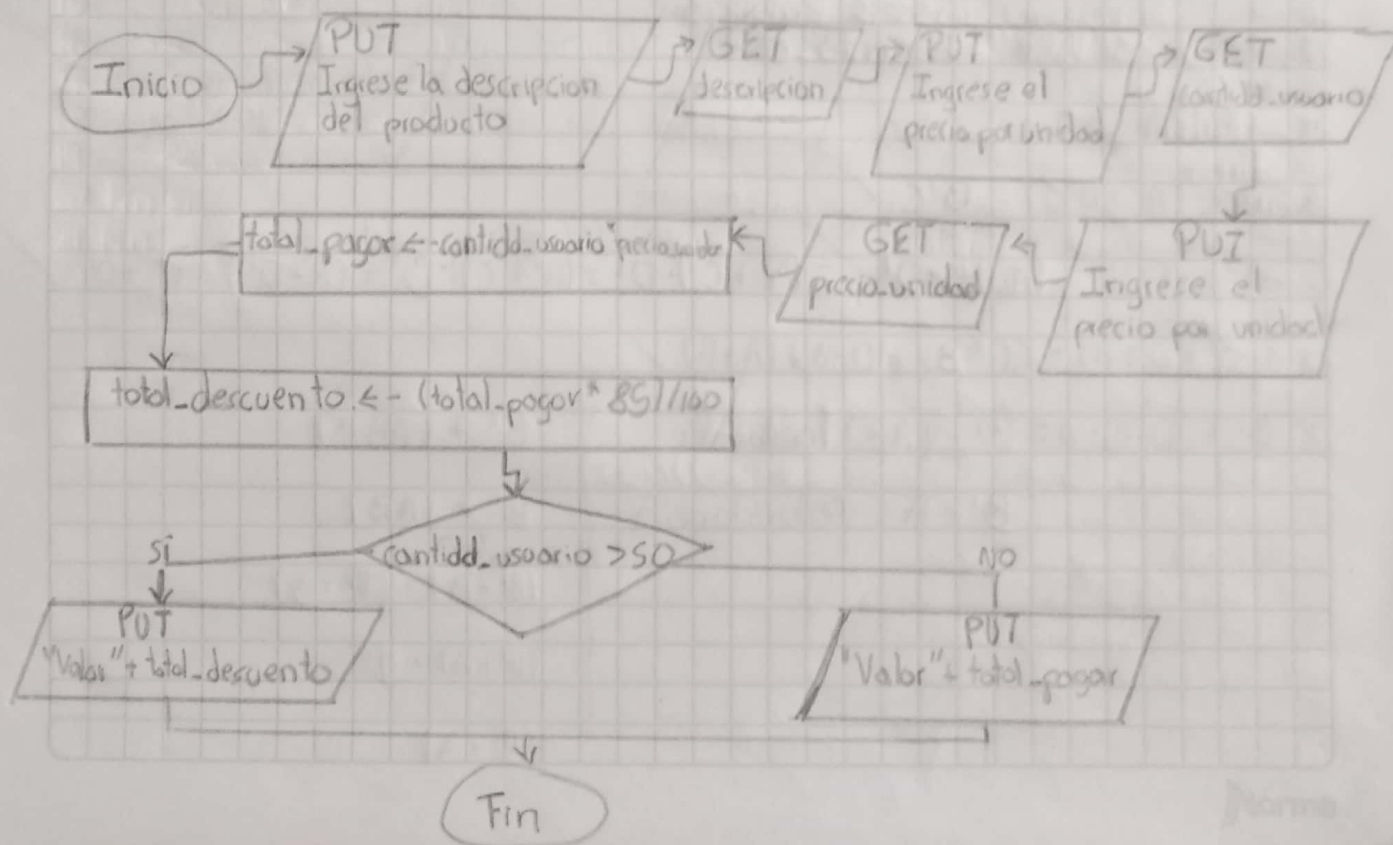 Inicio
PUT
Ingrese la descripcion
del producto
GET
descripcion
PUT
Ingrese el
precio por unidad
GET
cantidd_usuario
PUT
Ingrese el
precio por unidad
GET
precio_unidad
total_pagar <- cantidd_usuario *
total_descuento <- (total_pagar * 85)/100
cantidd_usuario >50
SI
NO
PUT
"Valor" + total_descuento
PUT
"Valor" + total_pagar
Fin
Norma